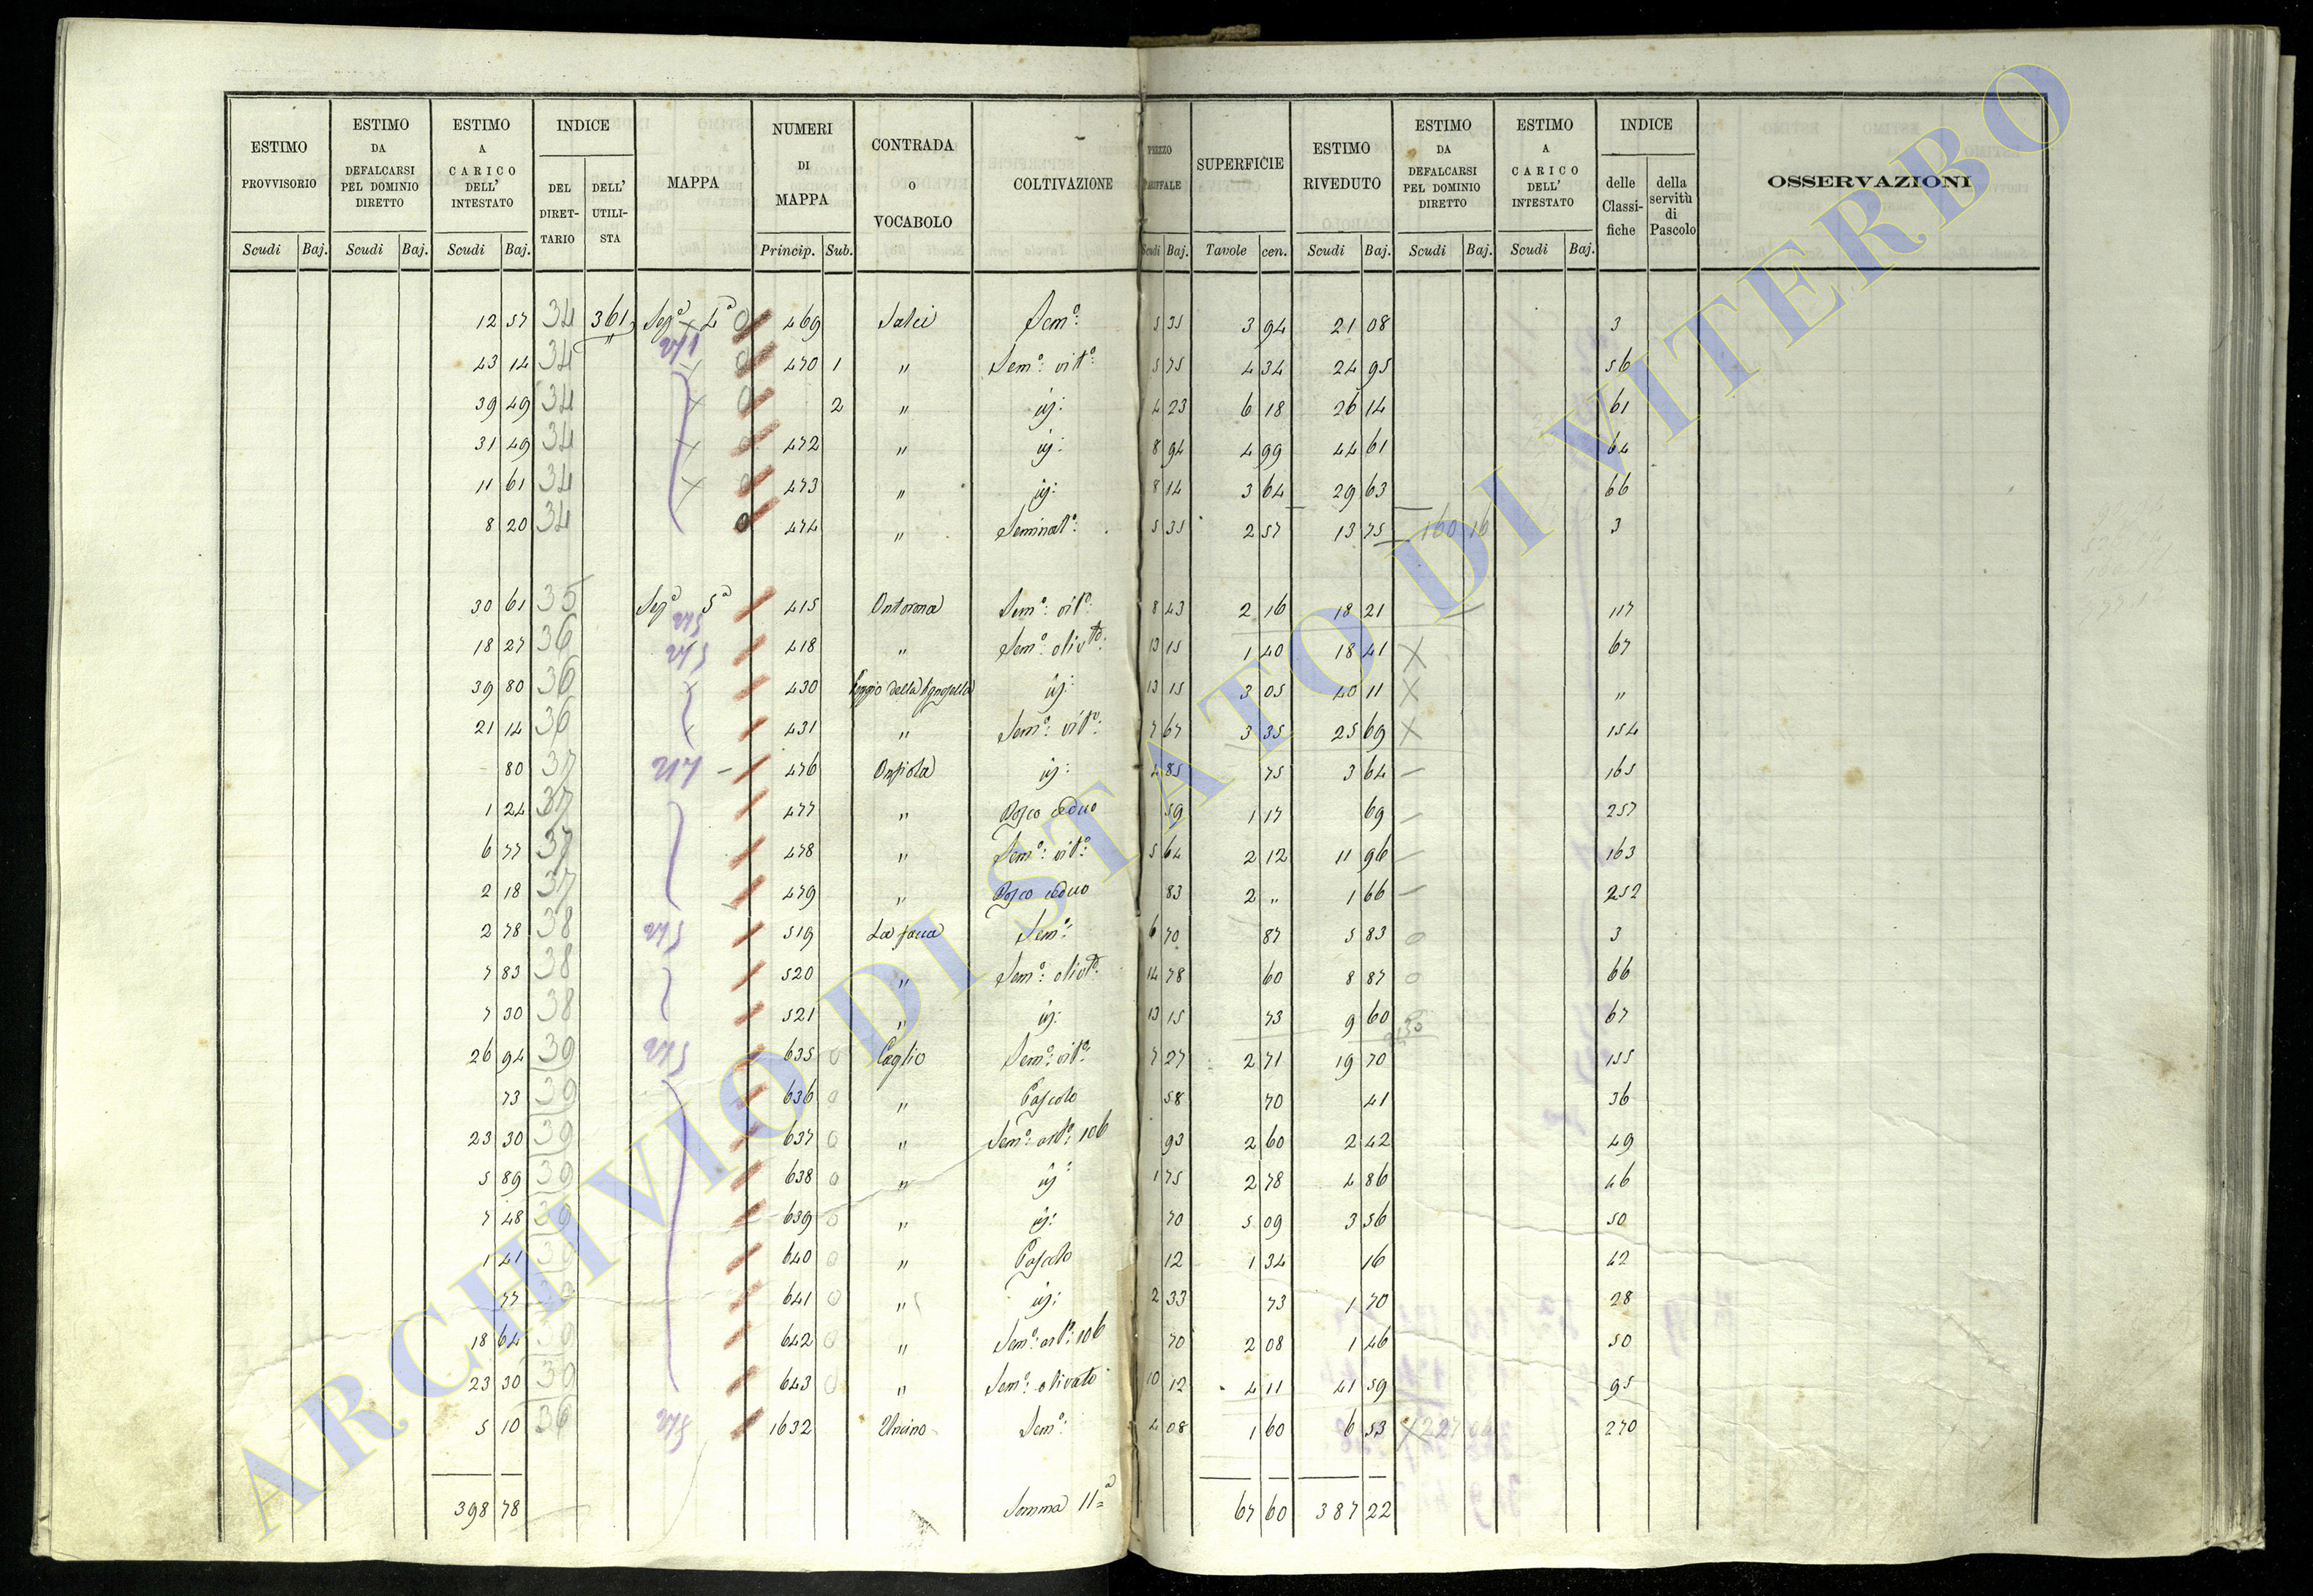 ESTIMO PROVVISORIO
ESTIMO DA DEFALCARSI PEL DOMINIO DIRETTO
ESTIMO A CARICO DELL' INTESTATO
INDICE
DEL DIRET-TARIO
DELL' UTILI-STA
MAPPA
NUMERI DI MAPPA
CONTRADA O VOCABOLO
COLTIVAZIONE
PREZZO TARIFFALE
SUPERFICIE
ESTIMO RIVEDUTO
ESTIMO DA DEFALCARSI PEL DOMINIO DIRETTO
ESTIMO A CARICO DELL' INTESTATO
INDICE
delle Classi-fiche
della servitù di Pascolo
OSSERVAZIONI
Scudi Baj. Scudi Baj. Scudi Baj. Princip. Sub. Scudi Baj. Tavole cen. Scudi Baj. Scudi Baj. Scudi Baj.
12 57 34 361 Segª 4ª 469 Salci Semº: 5 35 3 94 21 08 3
43 14 34 470 1 " Semº: vitº: 5 75 4 34 24 95 56
39 49 34 2 " id: 4 23 6 18 26 14 61
31 49 34 472 " id: 8 94 4 99 44 61 64
11 61 34 473 " id: 8 14 3 64 29 63 66
8 20 34 474 " Seminatº: 5 35 2 57 13 75 160 16 3
30 61 35 Segª 5ª 415 Semº: vitº: 8 43 2 16 18 21 117
18 27 36 418 " Semº: olivtº: 13 15 1 40 18 41 X 67
39 80 36 430 Poggio della id: 13 15 3 05 40 11 X "
21 14 36 431 " Semº: vitº: 7 67 3 35 25 69 X 154
80 37 217 476 id: 4 85 75 3 64 165
1 24 37 477 " Bosco ceduo 59 1 17 69 257
6 77 37 478 " Semº: vitº: 5 64 2 12 11 96 163
2 18 37 479 " Bosco ceduo 83 2 " 1 66 252
2 78 38 519 Semº: 6 70 87 5 83 3
7 83 38 520 " Semº: olivtº: 14 78 60 8 87 66
7 30 38 521 " id: 13 15 73 9 60 67
26 94 39 635 Caglio Semº: vitº: 7 27 2 71 19 70 155
73 39 636 " Pascolo 58 70 41 36
23 30 39 637 " 93 2 60 2 42 49
5 89 39 638 " id: 1 75 2 78 4 86 46
7 48 39 639 " id: 70 5 09 3 56 50
1 41 39 640 " Pascolo 12 1 34 16 42
77 39 641 " id: 2 33 73 1 70 28
18 64 39 642 " 70 2 08 1 46 50
23 30 39 643 " Semº: olivato 10 12 4 11 41 59 95
5 10 36 1632 Uncino Semº: 4 08 1 60 6 53 X 270
398 78 Somma 11ª 67 60 387 22
ARCHIVIO DI STATO DI VITERBO